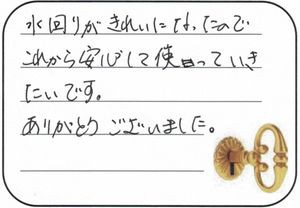 水回りがきれいになったので
これから安心して使っていき
たいです。
ありがとうございました。